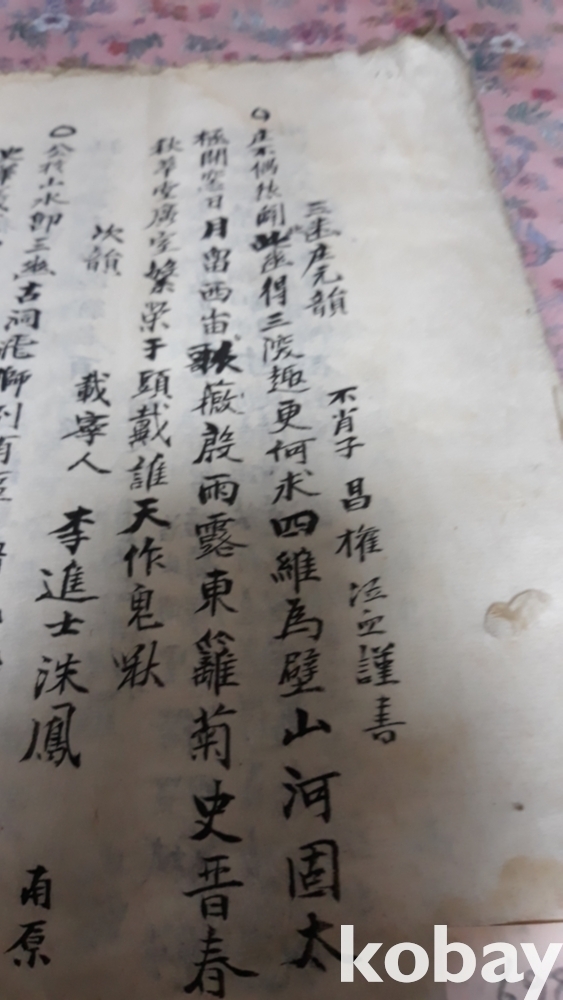 三幽庄元韻
不肖子 昌權泣血謹書
庄不偶然閒 幽得三陵趣更何求四維爲壁山河固太
極開窓日月留西宙 薇殷雨露東籬菊史晋春
秋草堂廣宅繁榮于頭戴誰天作鬼啾
次韻
載寧人 李進士洙鳳 南原
公於山水卽三幽古洞
kobay